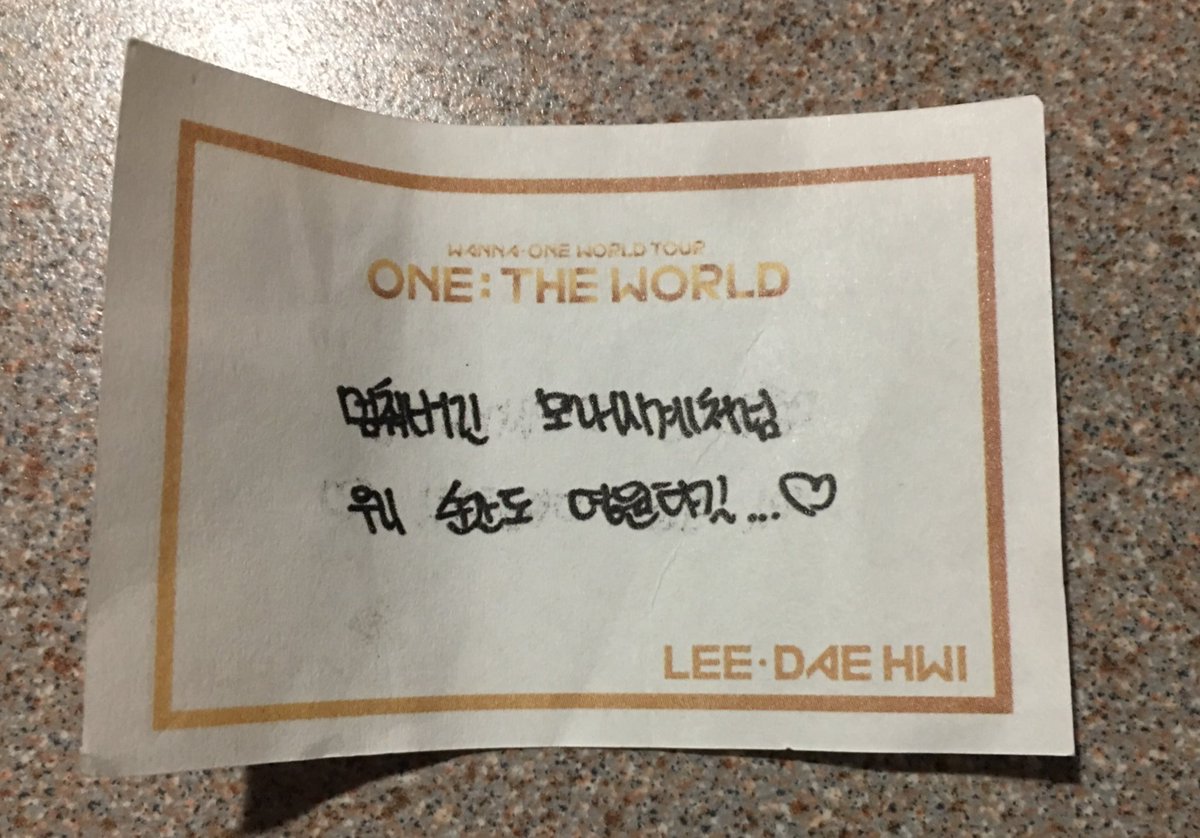 WANNA·ONE WORLD TOUR
ONE : THE WORLD
멈춰버린 모래시계처럼
우리 순간도 영원하길...♡
LEE·DAE HWI